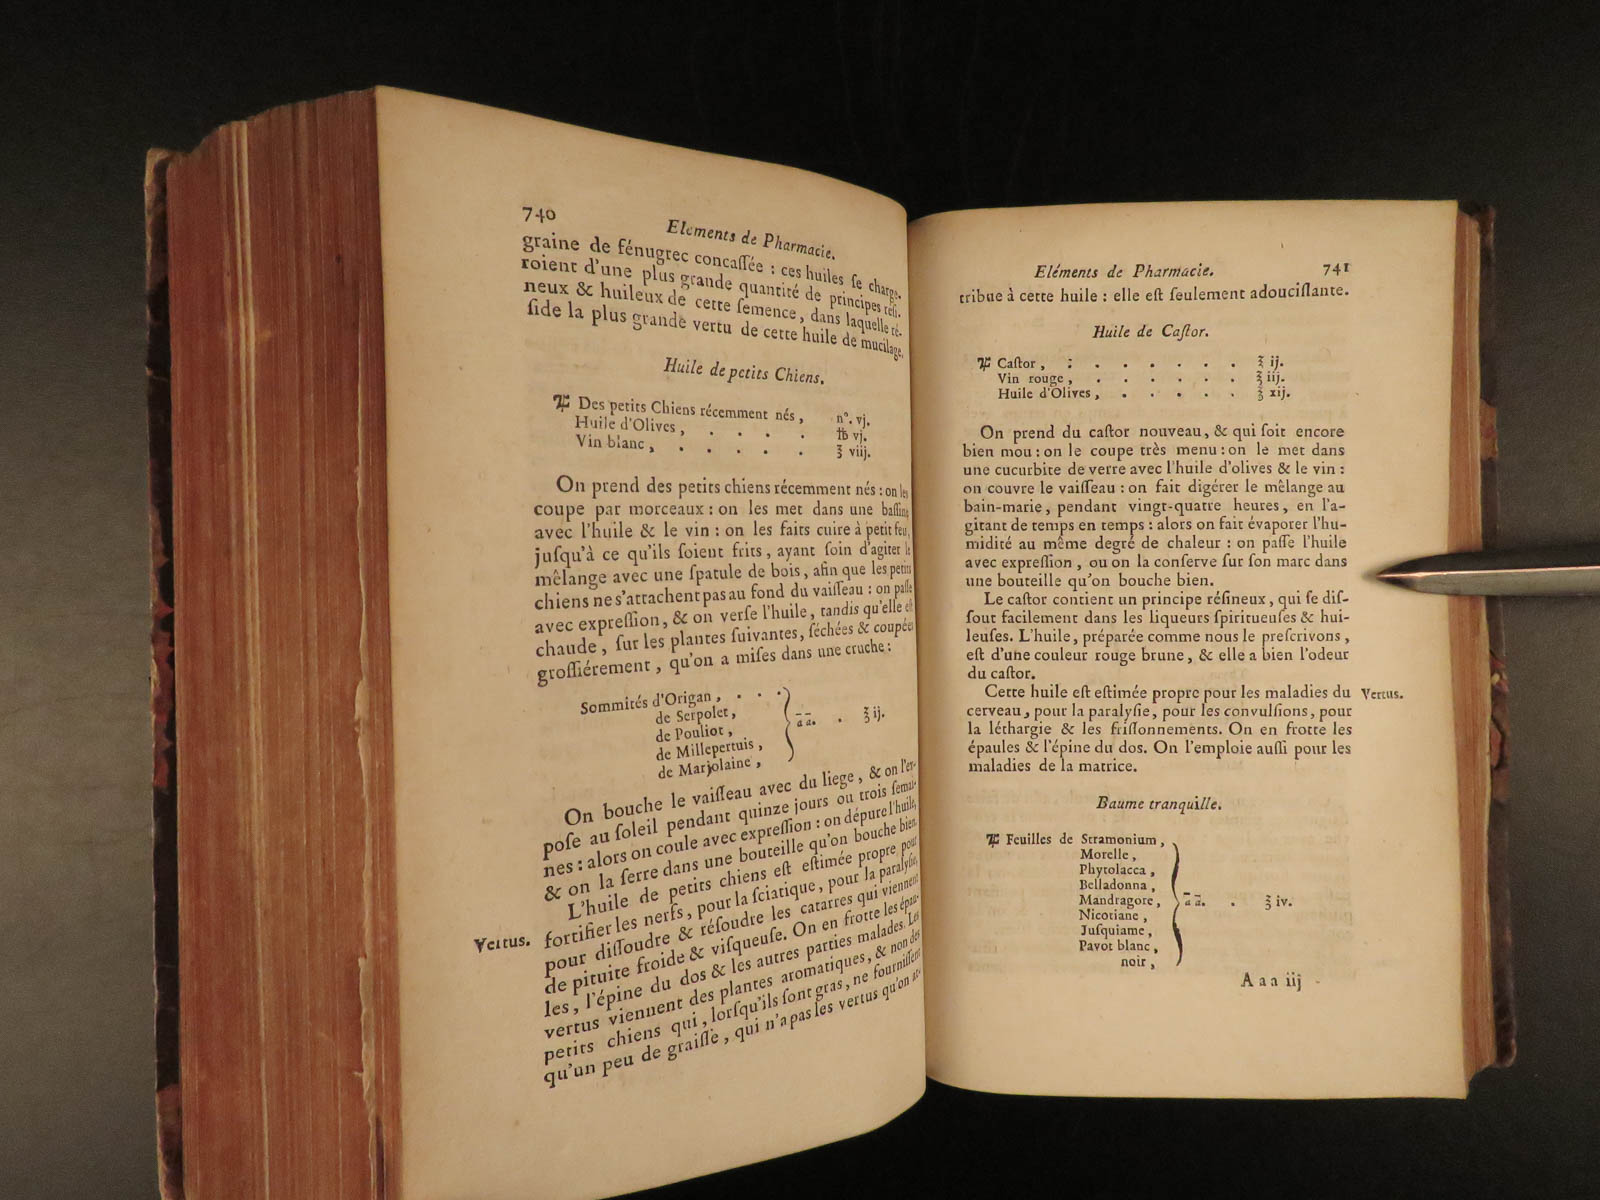 740
Elements de Pharmacie.
graine de fénugrec concaſſée : ces huiles ſe charge-
roient d'une plus grande quantité de principes réſi-
neux & huileux de cette ſemence, dans laquelle ré-
ſide la plus grande vertu de cette huile de mucilage.
Huile de petits Chiens.
♃ Des petits Chiens récemment nés, n°. vj.
Huile d'Olives, . . . . ℔ vj.
Vin blanc, . . . . . ℥ viij.
On prend des petits chiens récemment nés : on les
coupe par morceaux : on les met dans une baſſine
avec l'huile & le vin : on les faits cuire à petit feu,
juſqu'à ce qu'ils ſoient frits, ayant ſoin d'agiter le
mêlange avec une ſpatule de bois, afin que les petits
chiens ne s'attachent pas au fond du vaiſſeau : on paſſe
avec expreſſion, & on verſe l'huile, tandis qu'elle eſt
chaude, ſur les plantes ſuivantes, ſéchées & coupées
groſſiérement, qu'on a miſes dans une cruche :
Sommités d'Origan, . . .
de Serpolet,
de Pouliot, } āā. . ℥ ij.
de Millepertuis,
de Marjolaine,
On bouche le vaiſſeau avec du liege, & on l'ex-
poſe au ſoleil pendant quinze jours ou trois ſemai-
nes : alors on coule avec expreſſion : on dépure l'huile,
& on la ſerre dans une bouteille qu'on bouche bien.
L'huile de petits chiens eſt eſtimée propre pour
Vertus. fortifier les nerfs, pour la ſciatique, pour la paralyſie,
pour diſſoudre & réſoudre les catarres qui viennent
de pituite froide & viſqueuſe. On en frotte les épau-
les, l'épine du dos & les autres parties malades. Les
vertus viennent des plantes aromatiques, & non des
petits chiens qui, lorſqu'ils ſont gras, ne fourniſſent
qu'un peu de graiſſe, qui n'a pas les vertus qu'on at-
Eléments de Pharmacie. 741
tribue à cette huile : elle eſt ſeulement adouciſſante.
Huile de Caſtor.
♃ Caſtor, : . . . . . . ℥ ij.
Vin rouge, . . . . . . ℥ iij.
Huile d'Olives, . . . . . ℥ xij.
On prend du caſtor nouveau, & qui ſoit encore
bien mou : on le coupe très menu : on le met dans
une cucurbite de verre avec l'huile d'olives & le vin :
on couvre le vaiſſeau : on fait digérer le mêlange au
bain-marie, pendant vingt-quatre heures, en l'a-
gitant de temps en temps : alors on fait évaporer l'hu-
midité au même degré de chaleur : on paſſe l'huile
avec expreſſion, ou on la conſerve ſur ſon marc dans
une bouteille qu'on bouche bien.
Le caſtor contient un principe réſineux, qui ſe diſ-
ſout facilement dans les liqueurs ſpiritueuſes & hui-
leuſes. L'huile, préparée comme nous le preſcrivons,
eſt d'une couleur rouge brune, & elle a bien l'odeur
du caſtor.
Cette huile eſt eſtimée propre pour les maladies du Vertus.
cerveau, pour la paralyſie, pour les convulſions, pour
la léthargie & les friſſonnements. On en frotte les
épaules & l'épine du dos. On l'emploie auſſi pour les
maladies de la matrice.
Baume tranquille.
♃ Feuilles de Stramonium,
Morelle,
Phytolacca,
Belladonna,
Mandragore, } āā. . ℥ iv.
Nicotiane,
Juſquiame,
Pavot blanc,
noir,
A a a iij